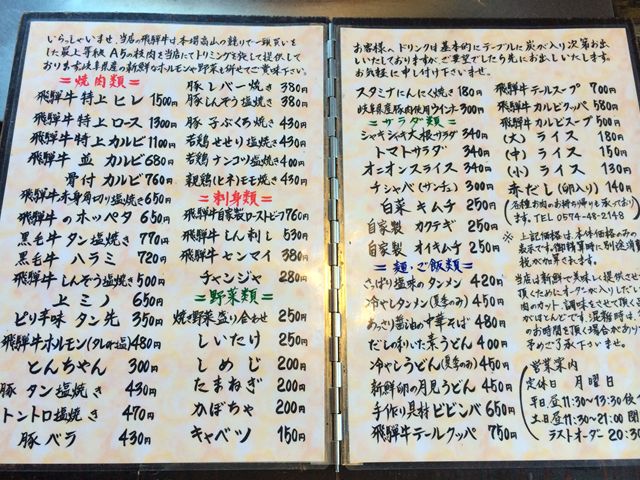 いらっしゃいませ、当店の飛騨牛は、本場高山の競りで一頭買いを
した最上等級 A5の枝肉を当店にてトリミングをして提供して
おります。岐阜県産の新鮮なホルモンや野菜も併せてご賞味下さい。
=焼肉類=
飛騨牛特上ヒレ 1500円
飛騨牛特上ロース 1300円
飛騨牛特上カルビ 1100円
飛騨牛 並 カルビ 680円
骨付カルビ 760円
飛騨牛赤身角切り塩焼き 650円
飛騨牛のホッペタ 650円
黒毛牛タン塩焼き 770円
黒毛牛ハラミ 720円
飛騨牛しんぞう塩焼き 500円
上ミノ 650円
ピリ辛味 タン先 350円
飛騨牛ホルモン(タレor塩) 480円
とんちゃん 300円
豚タン塩焼き 430円
トントロ塩焼き 470円
豚バラ 430円
豚レバー焼き 380円
豚しんぞう塩焼き 380円
豚子ぶくろ焼き 430円
若鶏せせり塩焼き 430円
若鶏ナンコツ塩焼き 400円
親鶏(ヒネ)モモ焼き 430円
=刺身類=
飛騨牛自家製ローストビーフ 760円
飛騨牛しん刺し 530円
飛騨牛センマイ 380円
チャンジャ 280円
=野菜類=
焼き野菜盛り合わせ 250円
しいたけ 250円
しめじ 200円
たまねぎ 200円
かぼちゃ 200円
キャベツ 150円
お客様へドリンクは基本的にテーブルに炭が入り次第お出し
いたしておりますが、ご要望でしたら先にお出しいたします。
お気軽に申し付け下さいませ。
スタミナにんにく焼き 180円
岐阜県産豚肉使用ウインナー 300円
=サラダ類=
シャキシャキ大根サラダ 340円
トマトサラダ 340円
オニオンスライス 340円
チシャバ(サンチュ) 300円
白菜キムチ 250円
自家製 カクテギ 250円
自家製 オイキムチ 250円
=麺・ご飯類=
さっぱり塩味のタンメン 420円
冷やしタンメン(夏季のみ) 450円
あっさり醤油の中華そば 480円
だしの利いた素うどん 400円
冷やしうどん(夏季のみ) 450円
新鮮卵の月見うどん 450円
手作り具材ビビンバ 650円
飛騨牛テールクッパ 750円
飛騨牛テールスープ 700円
飛騨牛カルビクッパ 580円
飛騨牛カルビスープ 500円
(大)ライス 180円
(中)ライス 150円
(小)ライス 130円
赤だし(卵入り) 140円
各種お肉のお持ち帰りも承っております。TEL 0574-48-2148
※上記価格は、本体価格のみの
表示です。御精算時に別途消費
税が加算されます。
当店は新鮮で美味しく提供させて
頂くためにオーダーが入りしだい
肉のカット、調味をさせて頂く
がほとんどです。混雑時は、
のお時間を頂く場合があり
予めご了承下さいませ。
営業案内
定休日 月曜日
平日昼11:30~13:30
土日昼11:30~21:00
ラストオーダー 20:30